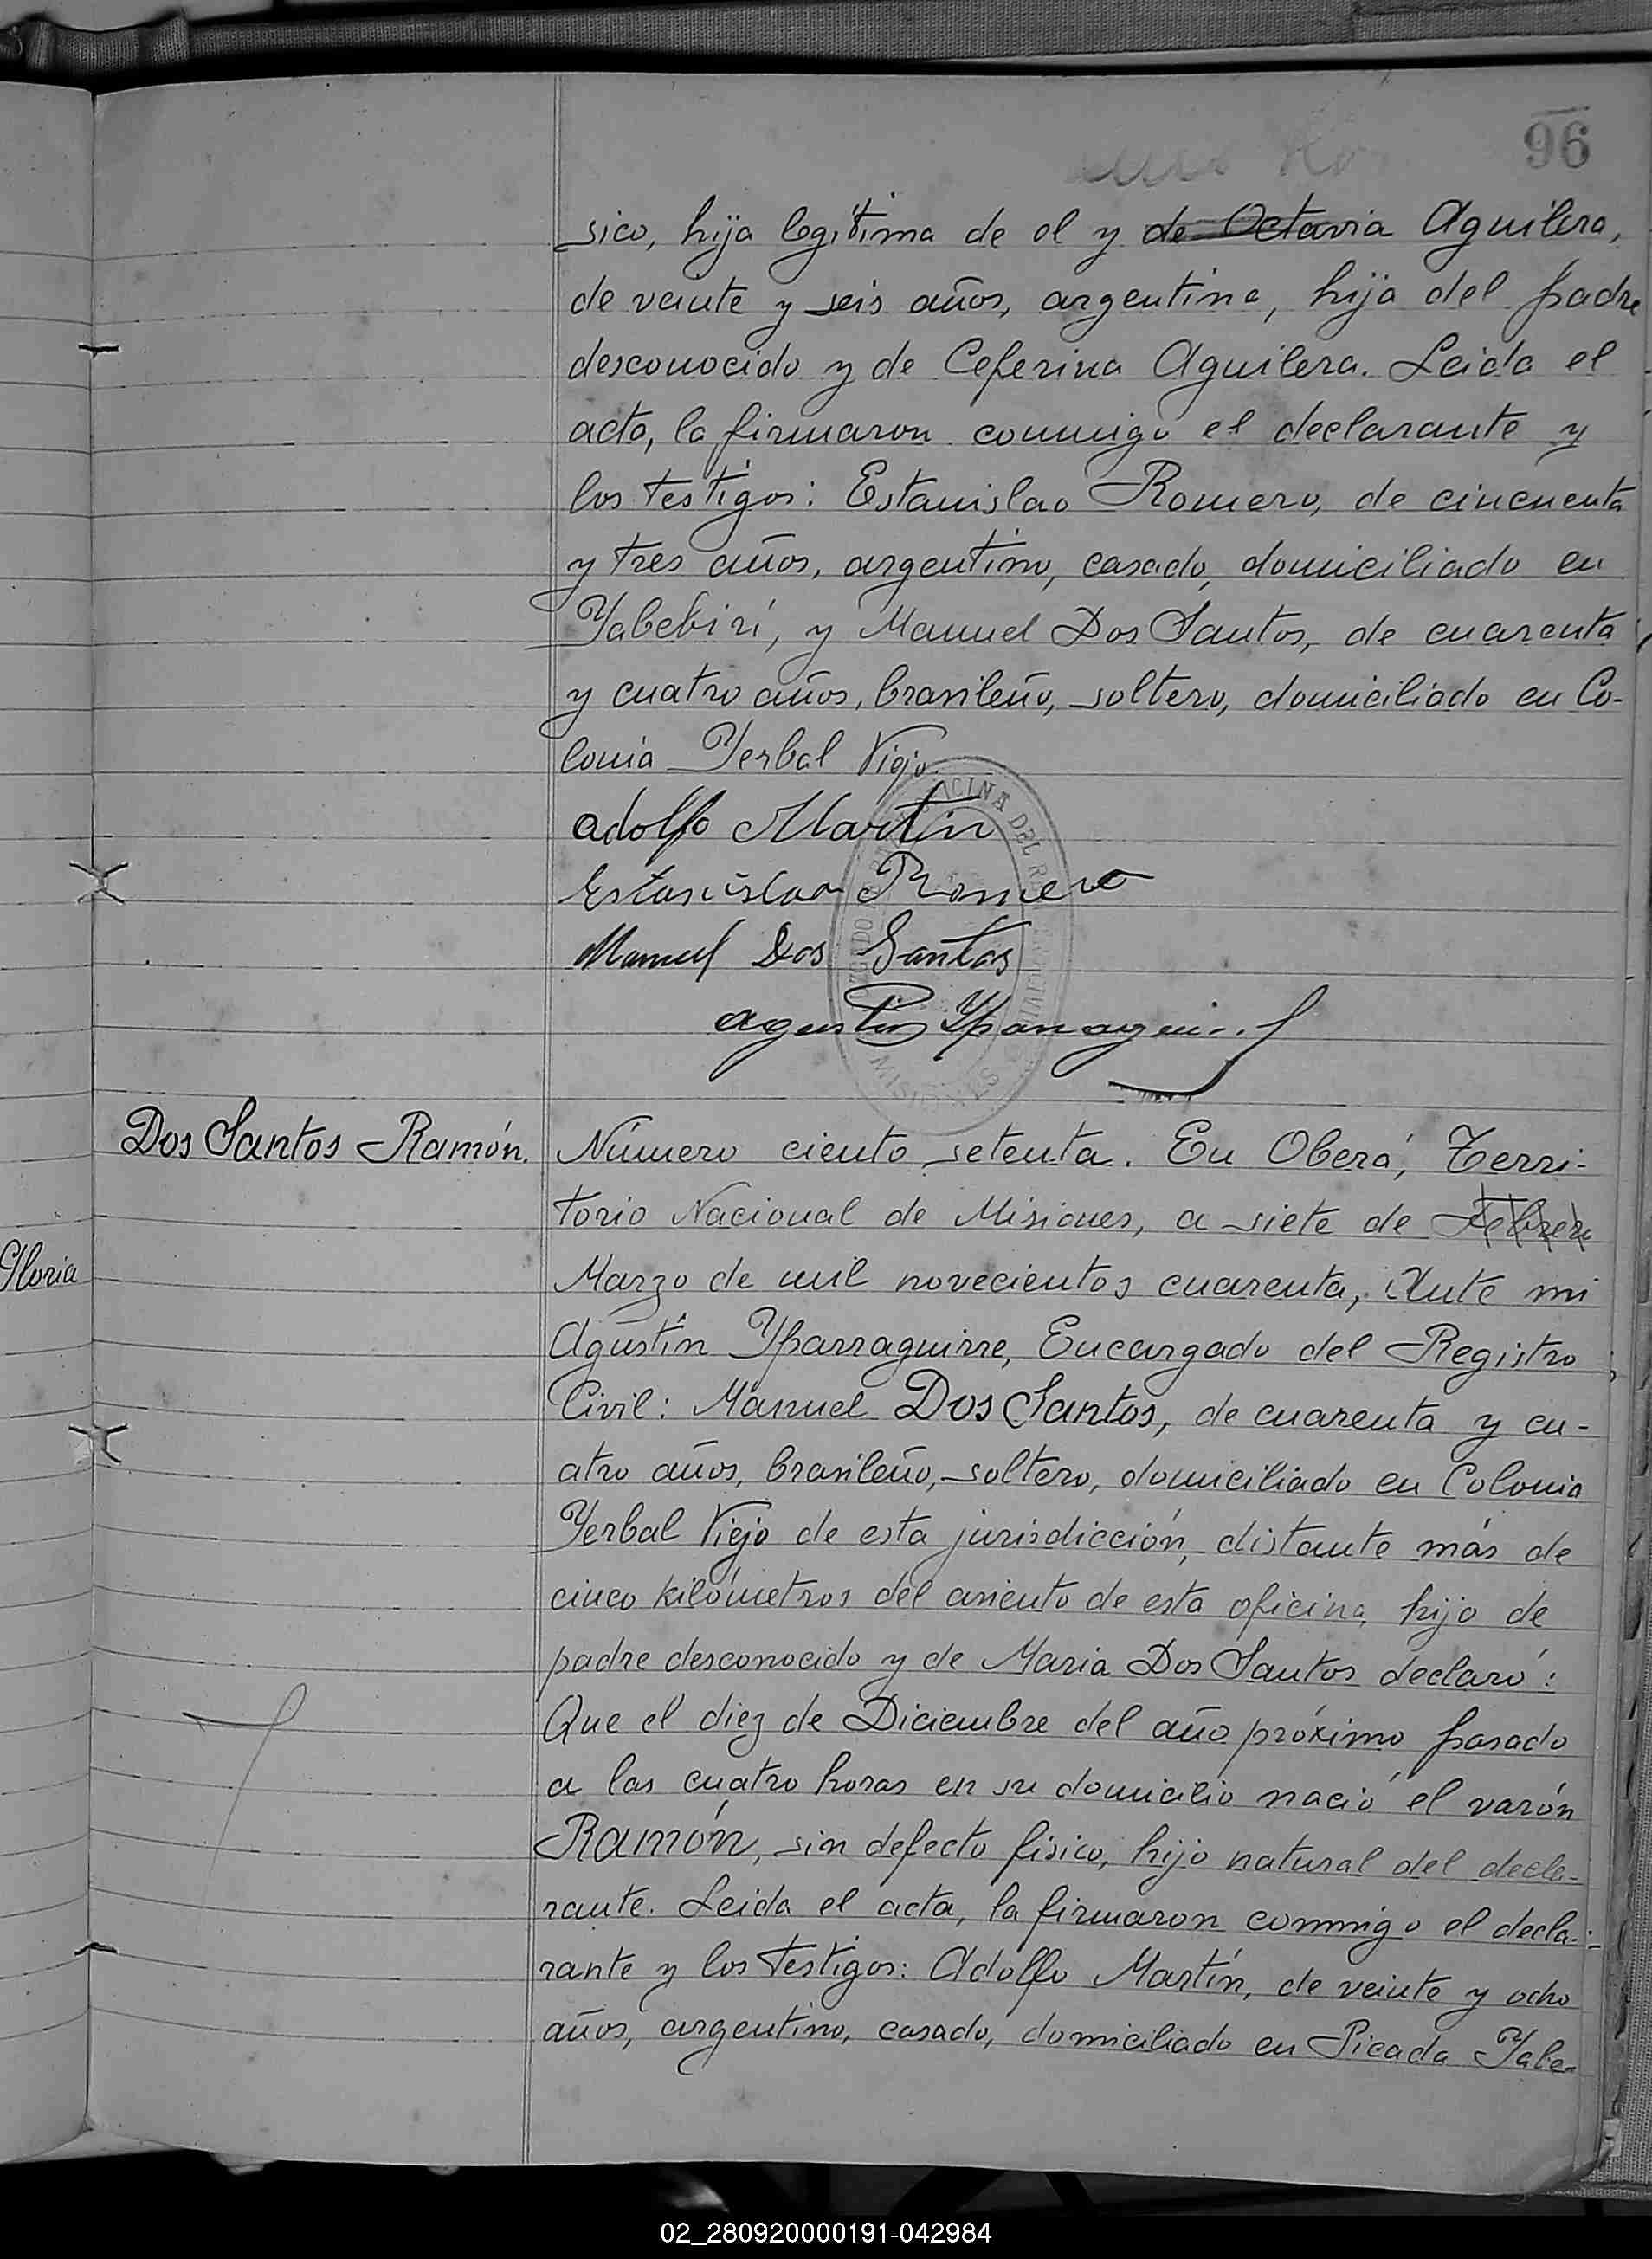 96
sico, hija legítima de el y de Octavia Aguilera,
de veinte y seis años, argentina, hija del padre
desconocido y de Ceferina Aguilera. Leida el
acta, la firmaron conmigo el declarante y
los testigos: Estanislao Romero, de cincuenta
y tres años, argentino, casado, domiciliado en
Yabebirí, y Manuel Dos Santos, de cuarenta
y cuatro años, brasileño, soltero, domiciliado en Co-
lonia Yerbal Viejo.
Adolfo Martin
Estanislao Romero
Manuel Dos Santos
Agustin
MISIONES
Dos Santos Ramón.
Número ciento setenta. En Oberá, Terri-
torio Nacional de Misiones, a siete de Febrero
Gloria
Marzo de mil novecientos cuarenta, Ante mi
Agustín Yparraguirre, Encargado del Registro
Civil: Manuel Dos Santos, de cuarenta y cu-
atro años, brasileño, soltero, domiciliado en Colonia
Yerbal Viejo de esta jurisdicción, distante más de
cinco kilómetros del asiento de esta oficina, hijo de
padre desconocido y de Maria Dos Santos declaró:
Que el diez de Diciembre del año próximo pasado
a las cuatro horas en su domicilio nació el varón
Ramón, sin defecto físico, hijo natural del decla-
rante. Leida el acta, la firmaron conmigo el decla-
rante y los testigos: Adolfo Martín, de veinte y ocho
años, argentino, casado, domiciliado en Picada Yabe-
02_280920000191-042984